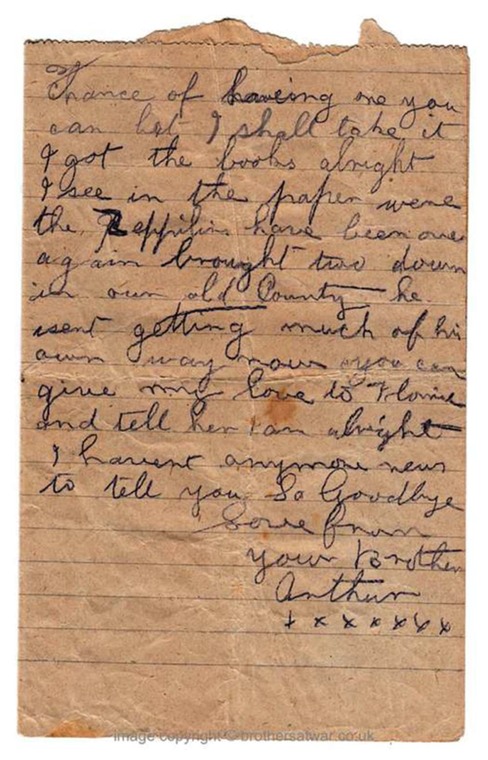 Chance of haveing one you
can bet I shall take it
I got the books alright
I see in the paper were
the Zeppilins have been over
again brought two down
in our old County he
isent getting much of his
own way now you can
give my love to Florrie
and tell her I am alright
I havent anymore news
to tell you So Goodbye
Love from
your Brother
Arthur
x x x x x x x
image copyright © brothersatwar.co.uk